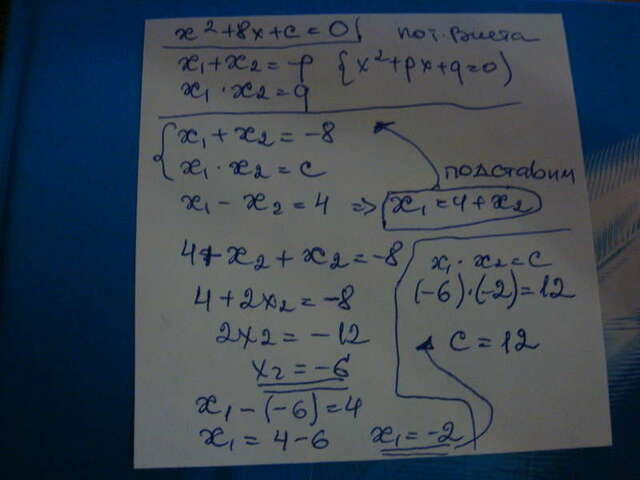 x²+8x+c=0 по т. Виета
x₁+x₂=-p {x²+px+q=0)
x₁·x₂=q
x₁+x₂=-8
x₁·x₂=c
подставим
x₁-x₂=4 => x₁=4+x₂
4+x₂+x₂=-8
4+2x₂=-8
2x₂=-12
x₂=-6
x₁-(-6)=4
x₁=4-6 x₁=-2
x₁·x₂=c
(-6)·(-2)=12
c=12